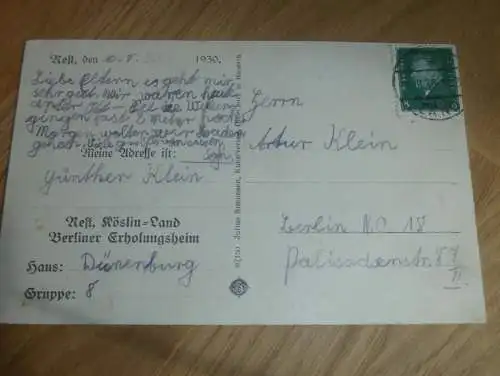 Nest, den 10. V. 1930.
Liebe Eltern es geht mir
sehr gut Wir waren heute
an der Ost-See die Wellen
gingen fast 2 meter hoch
Morgen wollen wir baden
gehen. Viele
Meine Adresse ist:
Günther Klein
Nest, Köslin-Land
Berliner Erholungsheim
Haus: Dünenburg
Gruppe: 8
Herrn
Artur Klein
Berlin N.O 18
Palisadenstr. 77
II